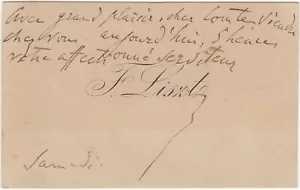 Avec grand plaisir, cher Comte, viendrai
chez Vous, aujourd'hui, 5 heures
votre affectionné serviteur
F. Liszt
Samedi.